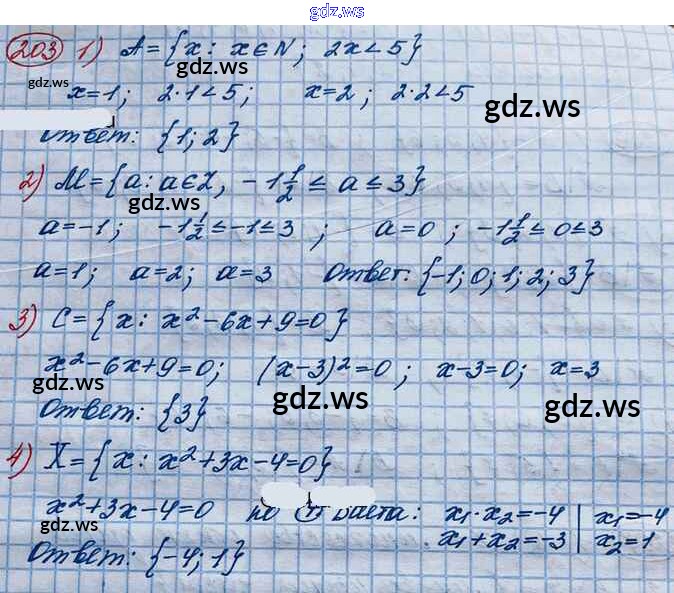 gdz.ws
203 1) A = {x: x∈N; 2x<5}
gdz.ws
gdz.ws
x=1; 2·1<5; x=2; 2·2<5
gdz.ws
Ответ: {1; 2}
2) M = {a: a∈Z, -1 1/2 ≤ a ≤ 3}
gdz.ws
a=-1; -1 1/2 ≤ -1 ≤ 3; a=0; -1 1/2 ≤ 0 ≤ 3
a=1; a=2; a=3 Ответ: {-1; 0; 1; 2; 3}
3) C = {x: x²-6x+9=0}
x²-6x+9=0; (x-3)²=0; x-3=0; x=3
gdz.ws
gdz.ws
gdz.ws
Ответ: {3}
4) X = {x: x²+3x-4=0}
x²+3x-4=0 по Виета: x₁·x₂=-4 | x₁=-4
gdz.ws
x₁+x₂=-3 | x₂=1
Ответ: {-4; 1}
gdz.ws